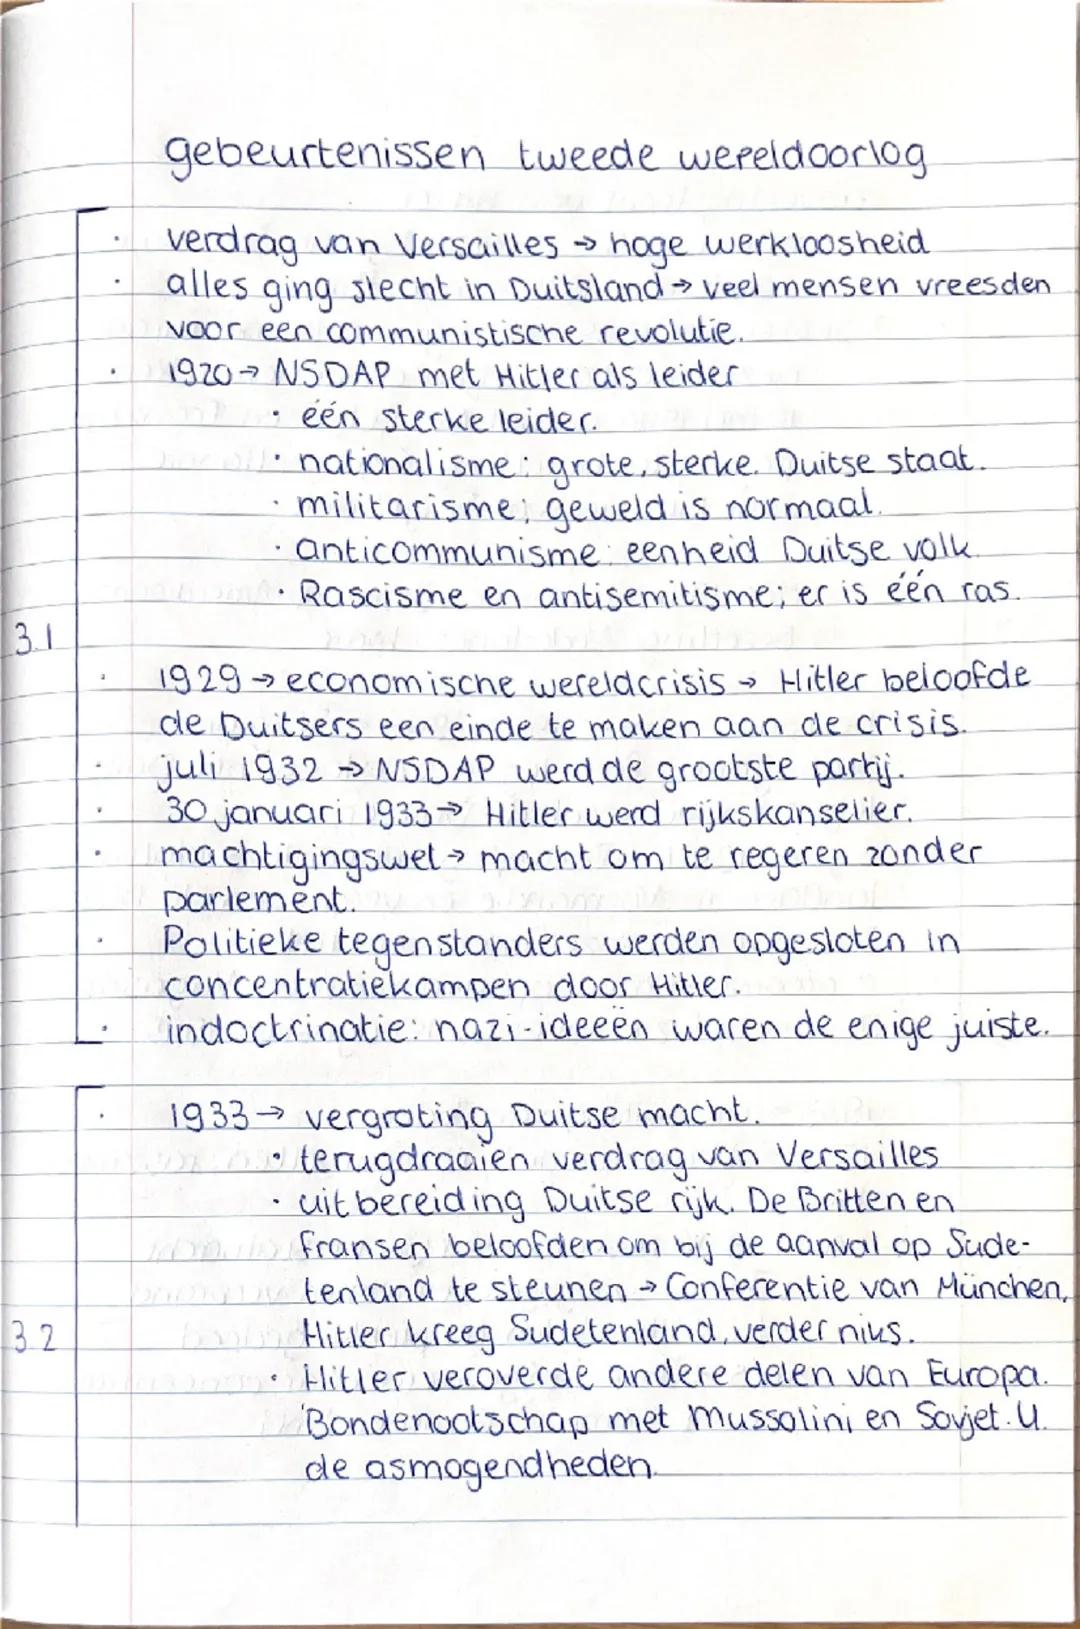 gebeurtenissen tweede wereldoorlog
· verdrag van Versailles → hoge werkloosheid
· alles ging slecht in Duitsland → veel mensen vreesden
voor een communistische revolutie.
· 1920 → NSDAP met Hitler als leider
· één sterke leider.
· nationalisme: grote, sterke Duitse staat.
· militarisme; geweld is normaal.
· anticommunisme: eenheid Duitse volk.
· Rascisme en antisemitisme; er is één ras.
3.1
· 1929 → economische wereldcrisis → Hitler beloofde
de Duitsers een einde te maken aan de crisis.
· juli 1932 → NSDAP werd de grootste partij.
· 30 januari 1933 → Hitler werd rijkskanselier.
· machtigingswet → macht om te regeren zonder
parlement.
· Politieke tegenstanders werden opgesloten in
concentratiekampen door Hitler.
· indoctrinatie: nazi-ideeën waren de enige juiste.
· 1933 → vergroting Duitse macht.
· terugdraaien verdrag van Versailles
· uitbereiding Duitse rijk. De Britten en
fransen beloofden om bij de aanval op Sude-
tenland te steunen → Conferentie van München,
3.2 Hitler kreeg Sudetenland, verder niks.
· Hitler veroverde andere delen van Europa.
Bondenootschap met Mussolini en Sovjet.U.
de asmogendheden.